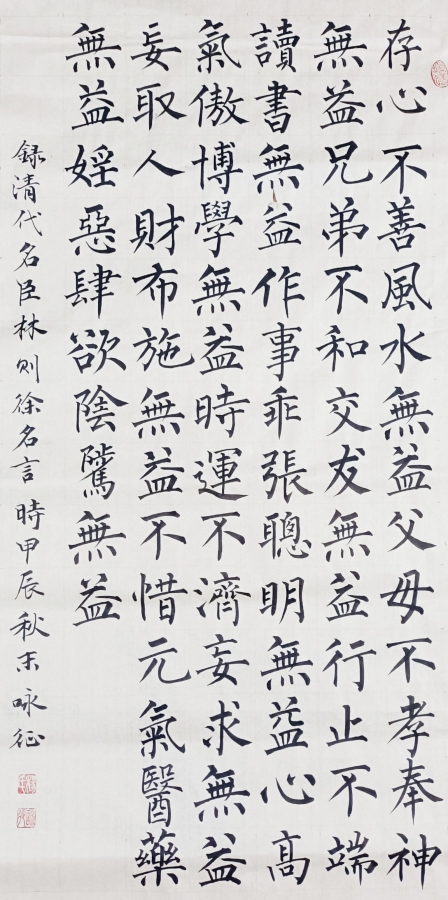 存心不善風水無益父母不孝奉神
無益兄弟不和交友無益行止不端
讀書無益作事乖張聰明無益心高
氣傲博學無益時運不濟妄求無益
妄取人財布施無益不惜元氣醫藥
無益婬惡肆欲陰騭無益
録清代名臣林則徐名言時甲辰秋末咏征